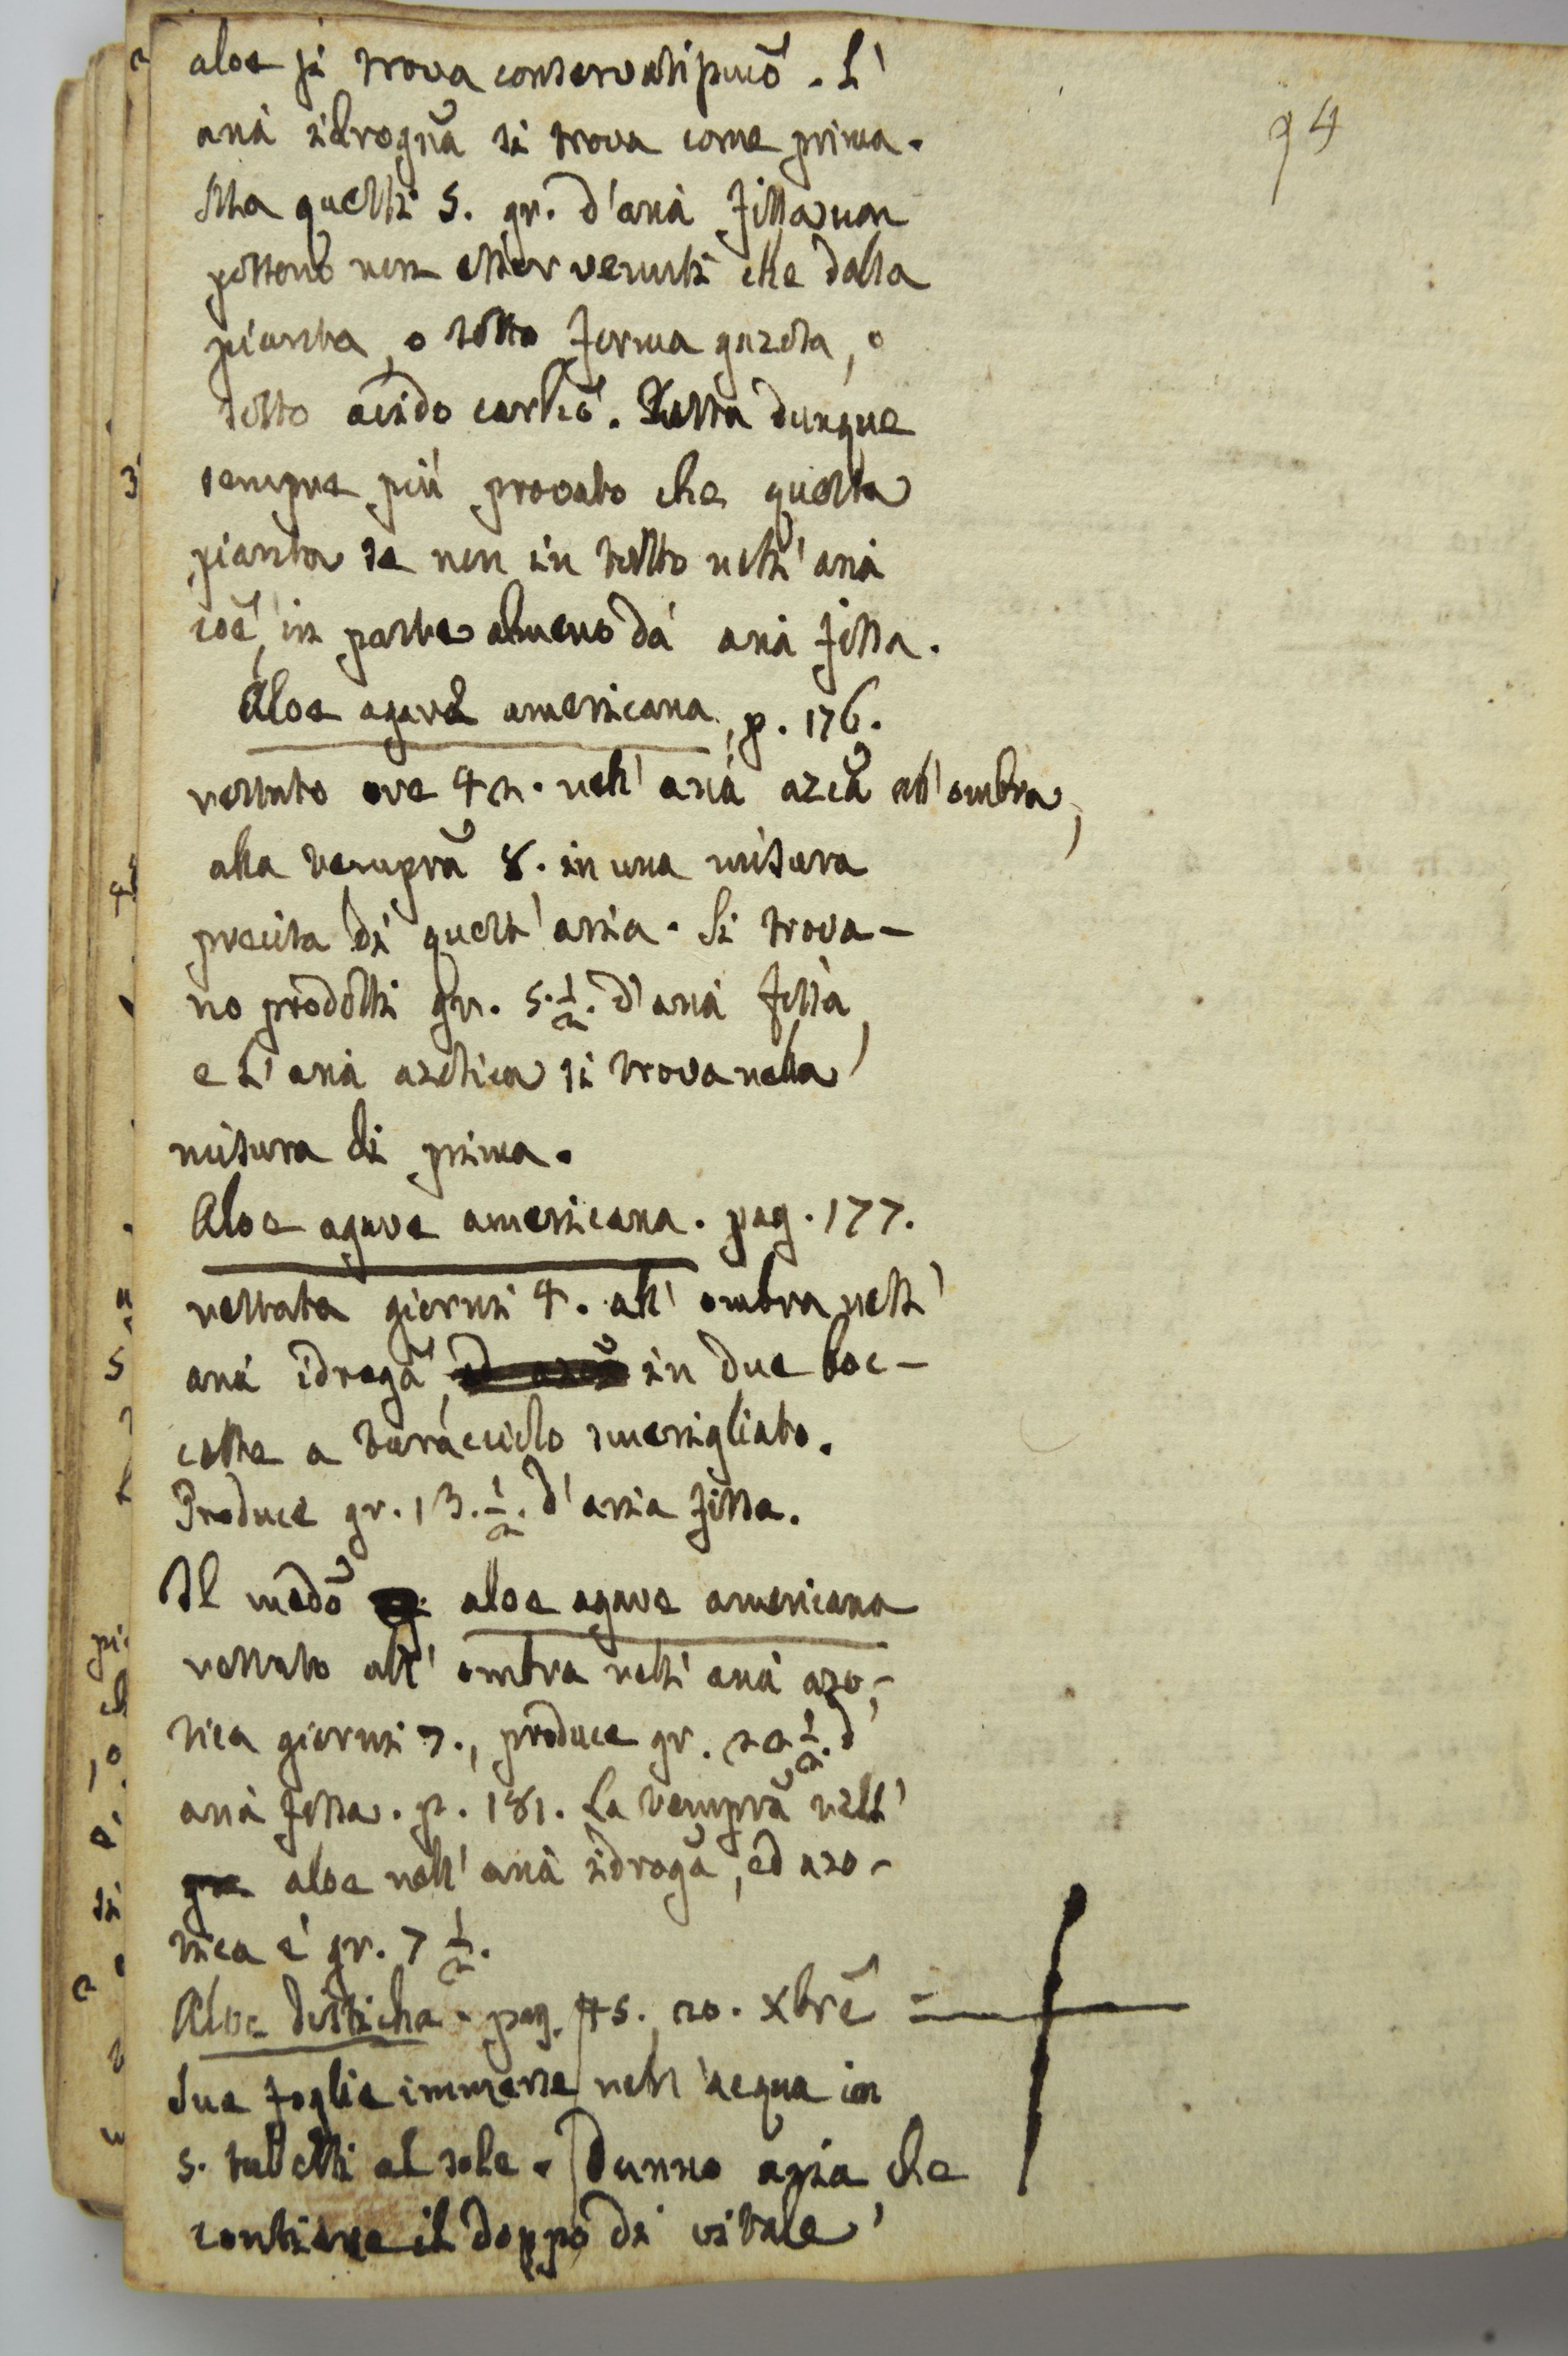 94
aloe si trova conservatissimo. L'
aria idrogña si trova come prima.
Ma questi 5. gr. d'aria fissa non
possono non esser venuti che dalla
pianta, o sotto forma gazosa, o
sotto acido carbcõ. Resta dunque
sempre più provato che questa
pianta se non in tutto nell'aria
coë, in parte almeno dà aria fissa.
Aloe agave americana, p. 176.
restato ore 42. nell'aria azcã all'ombra,
alla temprã 8. in una misura
precisa di quest'aria. Si trova-
no prodotti gr. 5.½. d'aria fissa,
e l'aria azotica si trova nella
misura di prima.
Aloe agave americana. pag. 177.
restata giorni 4. all'ombra nell'
aria idrogã, in due boc-
cette a turacciolo smerigliato.
Produce gr. 13.½. d'aria fissa.
Il medõ aloe agave americana
restato all'ombra nell'aria azo-
tica giorni 7., produce gr. 22½. d'
aria fissa. p. 181. La temprã nell'
aloe nell'aria idrogã, ed azo-
tica è gr. 7½.
Aloe disticha. pag. 45. 20. Xbrẽ =
due foglie immerse nell'acqua in
5. tubetti al sole. Danno aria che
contiene il doppo di vitale